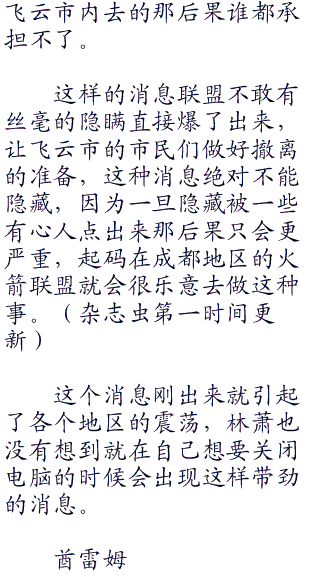 飞云市内去的那后果谁都承
担不了。
这样的消息联盟不敢有
丝毫的隐瞒直接爆了出来，
让飞云市的市民们做好撤离
的准备，这种消息绝对不能
隐藏，因为一旦隐藏被一些
有心人点出来那后果只会更
严重，起码在成都地区的火
箭联盟就会很乐意去做这种
事。（杂志虫第一时间更
新）
这个消息刚出来就引起
了各个地区的震荡，林萧也
没有想到就在自己想要关闭
电脑的时候会出现这样带劲
的消息。
酋雷姆